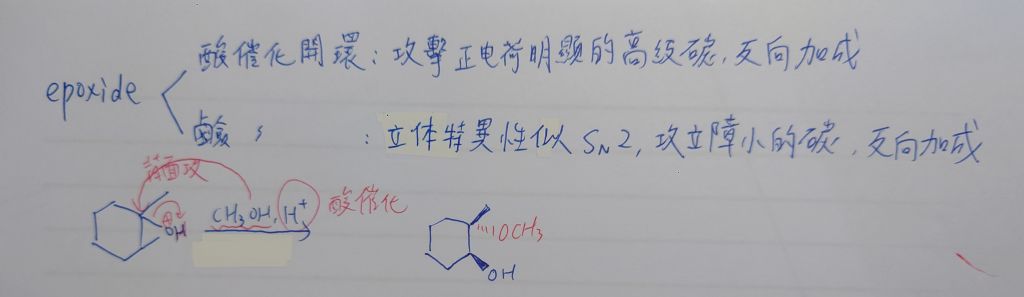 epoxide
酸催化開環：攻擊正电荷明顯的高级碳，反向加成
鹼 〃 ：立体特異性似 SN2, 攻立障小的碳，反向加成
背面攻
⊕
OH
CH3OH, H+
酸催化
OCH3
OH